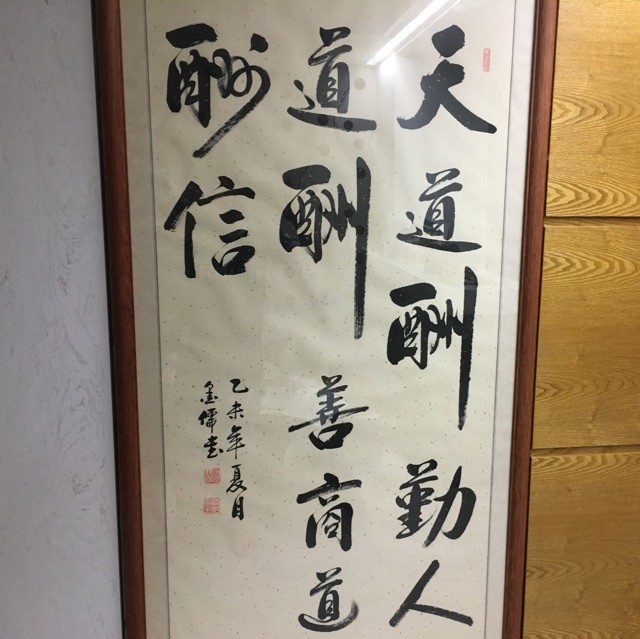 天道酬勤人
道酬善商道
酬信
乙未年夏月
墨儒书